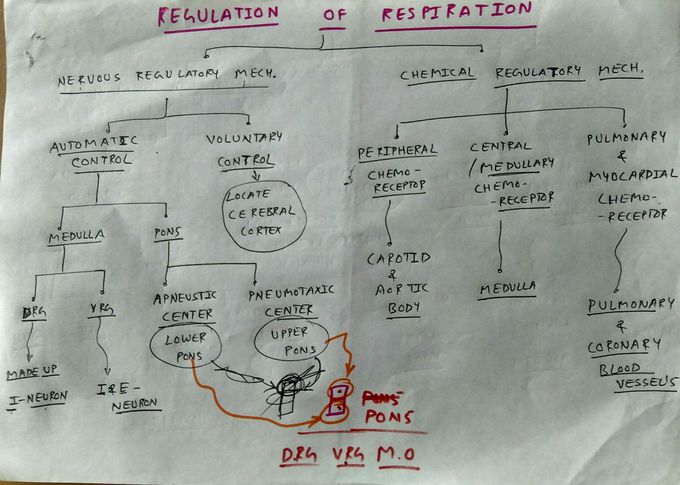 REGULATION OF RESPIRATION
NERVOUS REGULATORY MECH.
CHEMICAL REGULATORY MECH.
AUTOMATIC
CONTROL
VOLUNTARY
CONTROL
LOCATE
CEREBRAL
CORTEX
PERIPHERAL
CHEMO-
RECEPTOR
CENTRAL
/MEDULLARY
CHEMO-
-RECEPTOR
PULMONARY
&
MYOCARDIAL
CHEMO-
-RECEPTOR
MEDULLA
PONS
CAROTID
&
AORTIC
BODY
MEDULLA
PULMONARY
&
CORONARY
BLOOD
VESSEL'S
DRG
VRG
APNEUSTIC
CENTER
PNEUMOTAXIC
CENTER
LOWER
PONS
UPPER
PONS
MADE UP
I-NEURON
I&E-
NEURON
PONS
PONS
DRG VRG M.O